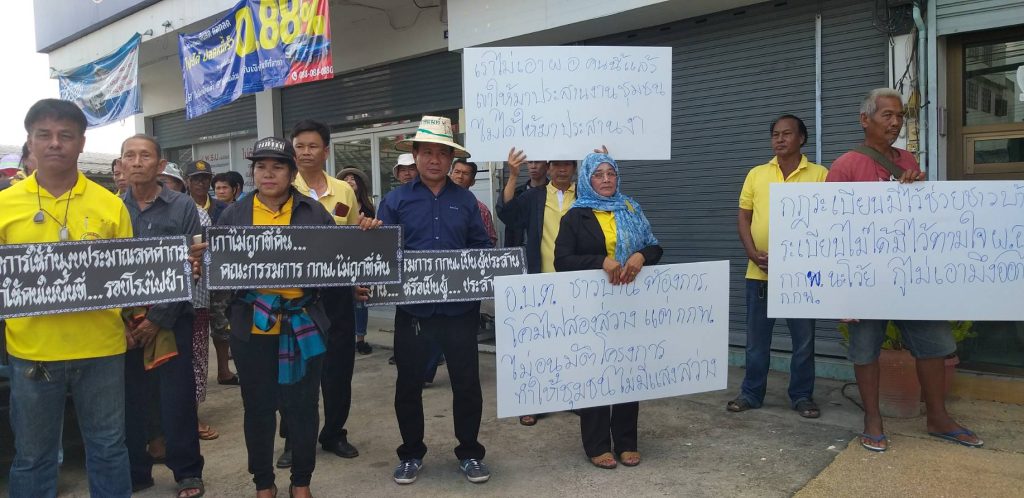 0.88%
เราไม่เอา ผ อ คนนี้แล้ว
เขาให้มาประสานงานชุมชน
ไม่ได้ให้มาประสานงา
กฎระเบียบมีไว้ช่วยชาวบ้า
ระเบียบไม่ได้มีไว้ตามใจ ผ.อ
กกพ. นะโว้ย กูไม่เอามึงออก
กกพ.
การใช้เงินงบประมาณสดศ่าระ
ให้คนในพื้นที่... รอบโรงไฟฟ้า
เกาไม่ถูกที่คัน...
คณะกรรมการ กกพ.ไม่ถูกที่คัน
มการ กกพ.เป็นผู้ประสาน
หรือเป็นผู้... ประสาน
อ.บ.ต. ชาวบ้าน ต้องการ
โคมไฟส่องสว่าง แต่ กกพ.
ไม่อนุมัติโครงการ
ทำให้ชุมชนไม่มีแสงสว่าง